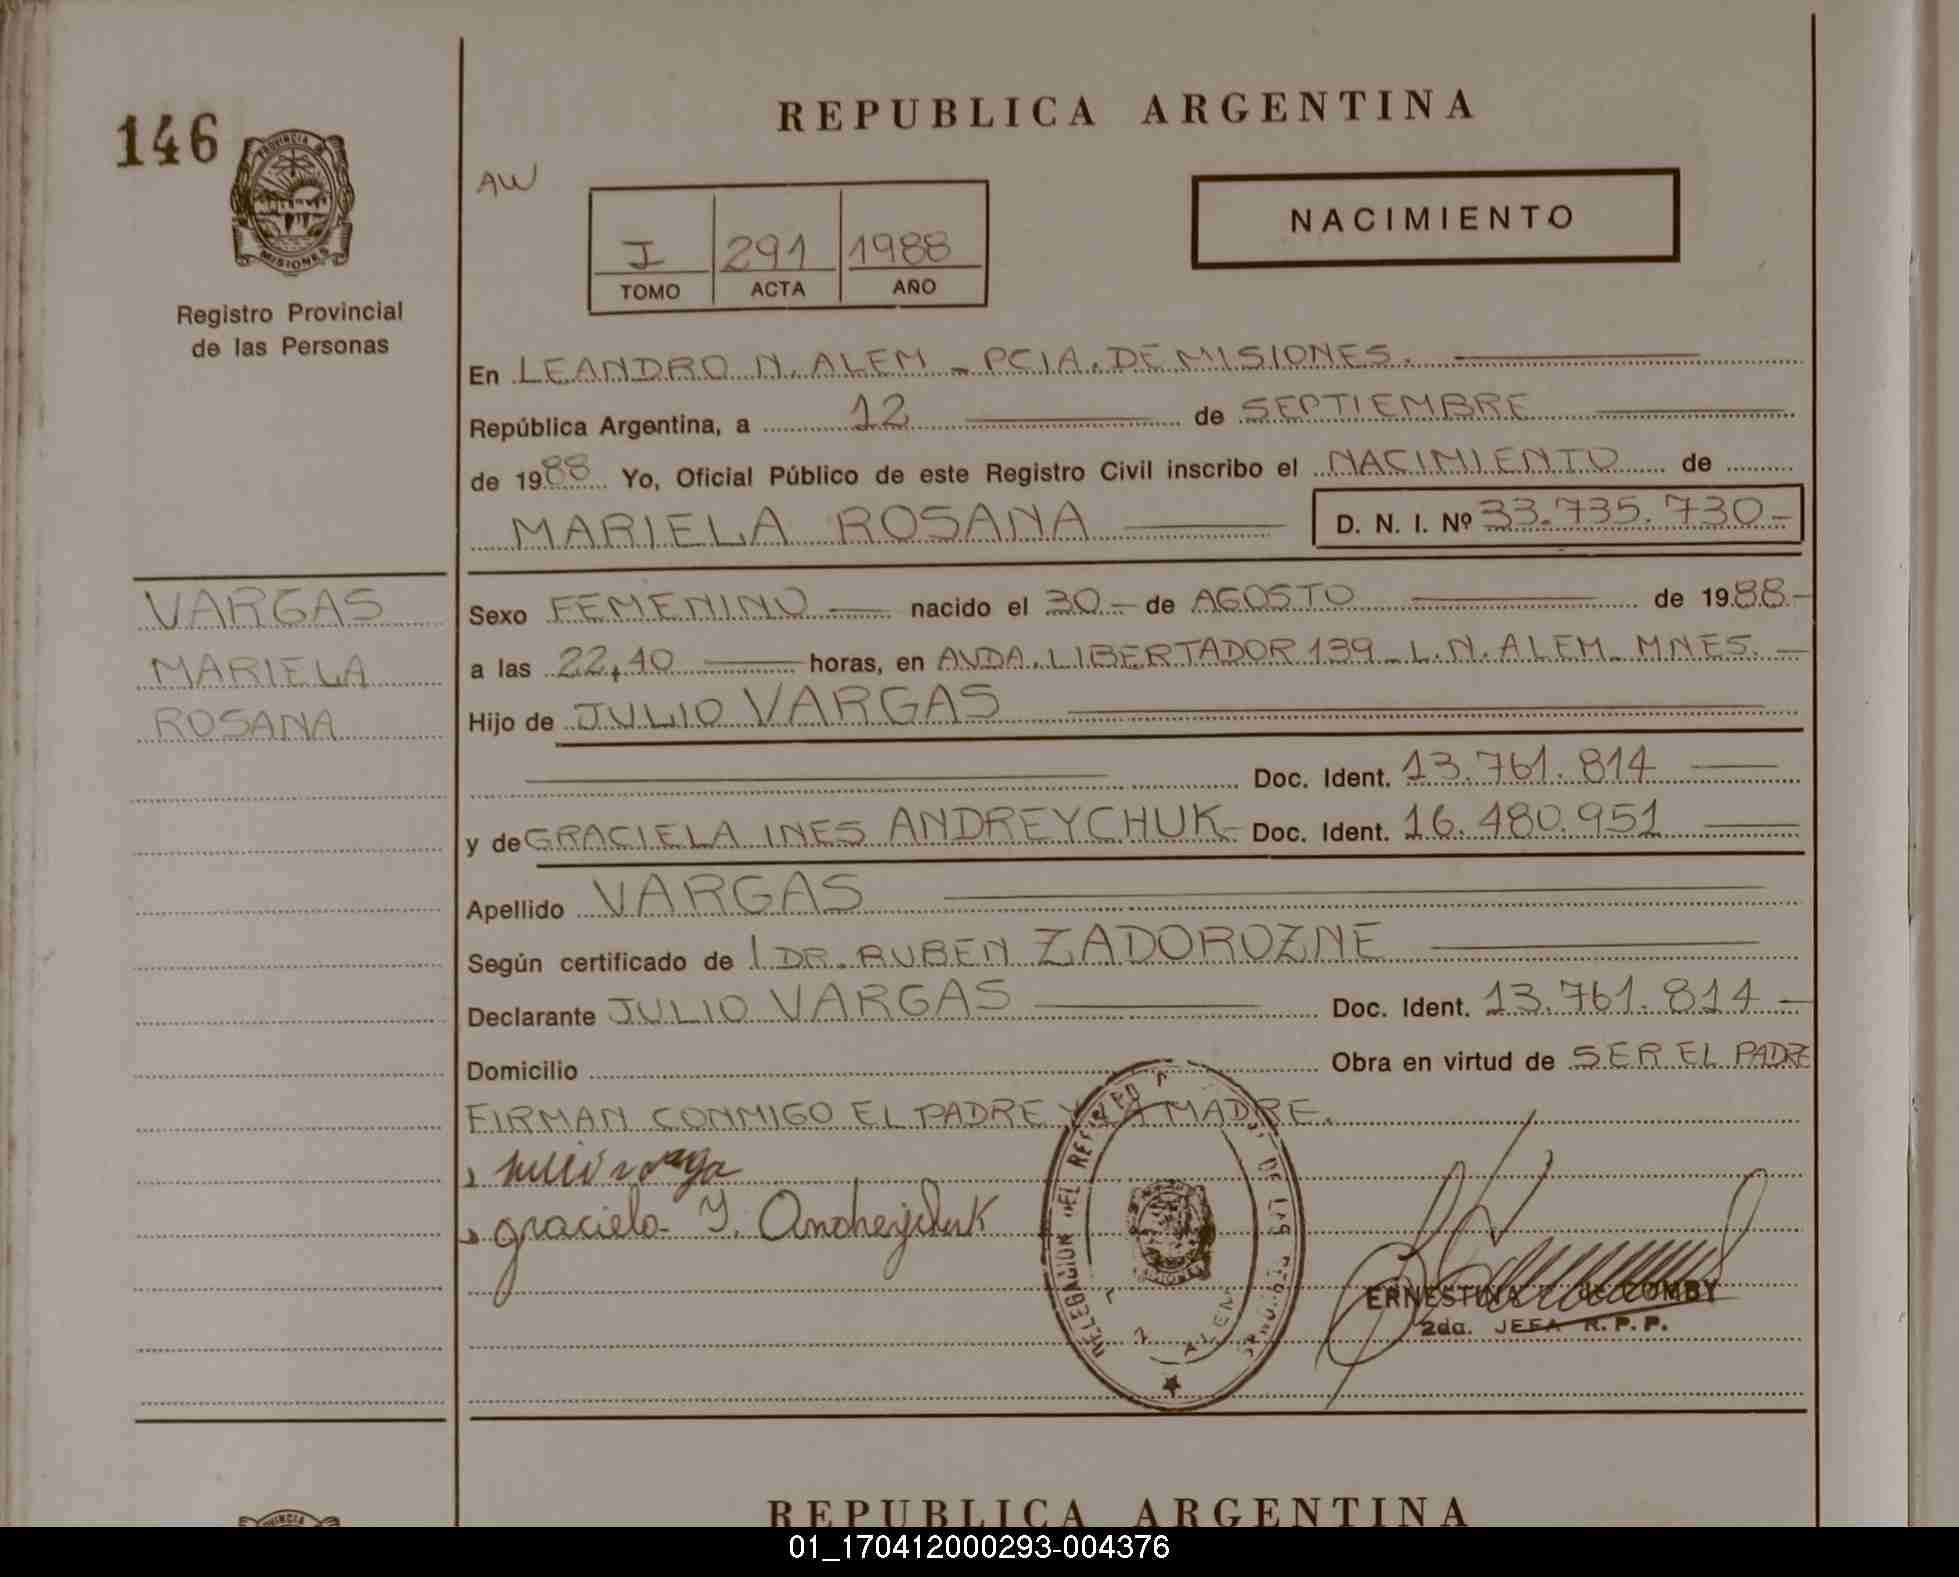 146
PROVINCIA DE
MISIONES
Registro Provincial
de las Personas
VARGAS
MARIELA
ROSANA
REPUBLICA ARGENTINA
AW
I 291 1988
TOMO ACTA AÑO
NACIMIENTO
En LEANDRO N. ALEM - PCIA. DE MISIONES.
República Argentina, a 12 de SEPTIEMBRE
de 1988 Yo, Oficial Público de este Registro Civil inscribo el NACIMIENTO de
MARIELA ROSANA D. N. I. Nº 33.735.730-
Sexo FEMENINO nacido el 30 - de AGOSTO de 1988-
a las 22,40 horas, en AVDA. LIBERTADOR 139 - L.N. ALEM - MNES. -
Hijo de JULIO VARGAS
Doc. Ident. 13.761.814
y de GRACIELA INES ANDREYCHUK - Doc. Ident. 16.480.951
Apellido VARGAS
Según certificado de l DR. RUBEN ZADOROZNE
Declarante JULIO VARGAS Doc. Ident. 13.761.814 -
Domicilio Obra en virtud de SER EL PADRE
FIRMAN CONMIGO EL PADRE Y LA MADRE.
Graciela I. Andreychuk
DELEGACION DEL REGISTRO DE LAS
ALEM
ERNESTINA de COMBY
2da. JEFA R. P. P.
REPUBLICA ARGENTINA
01_170412000293-004376